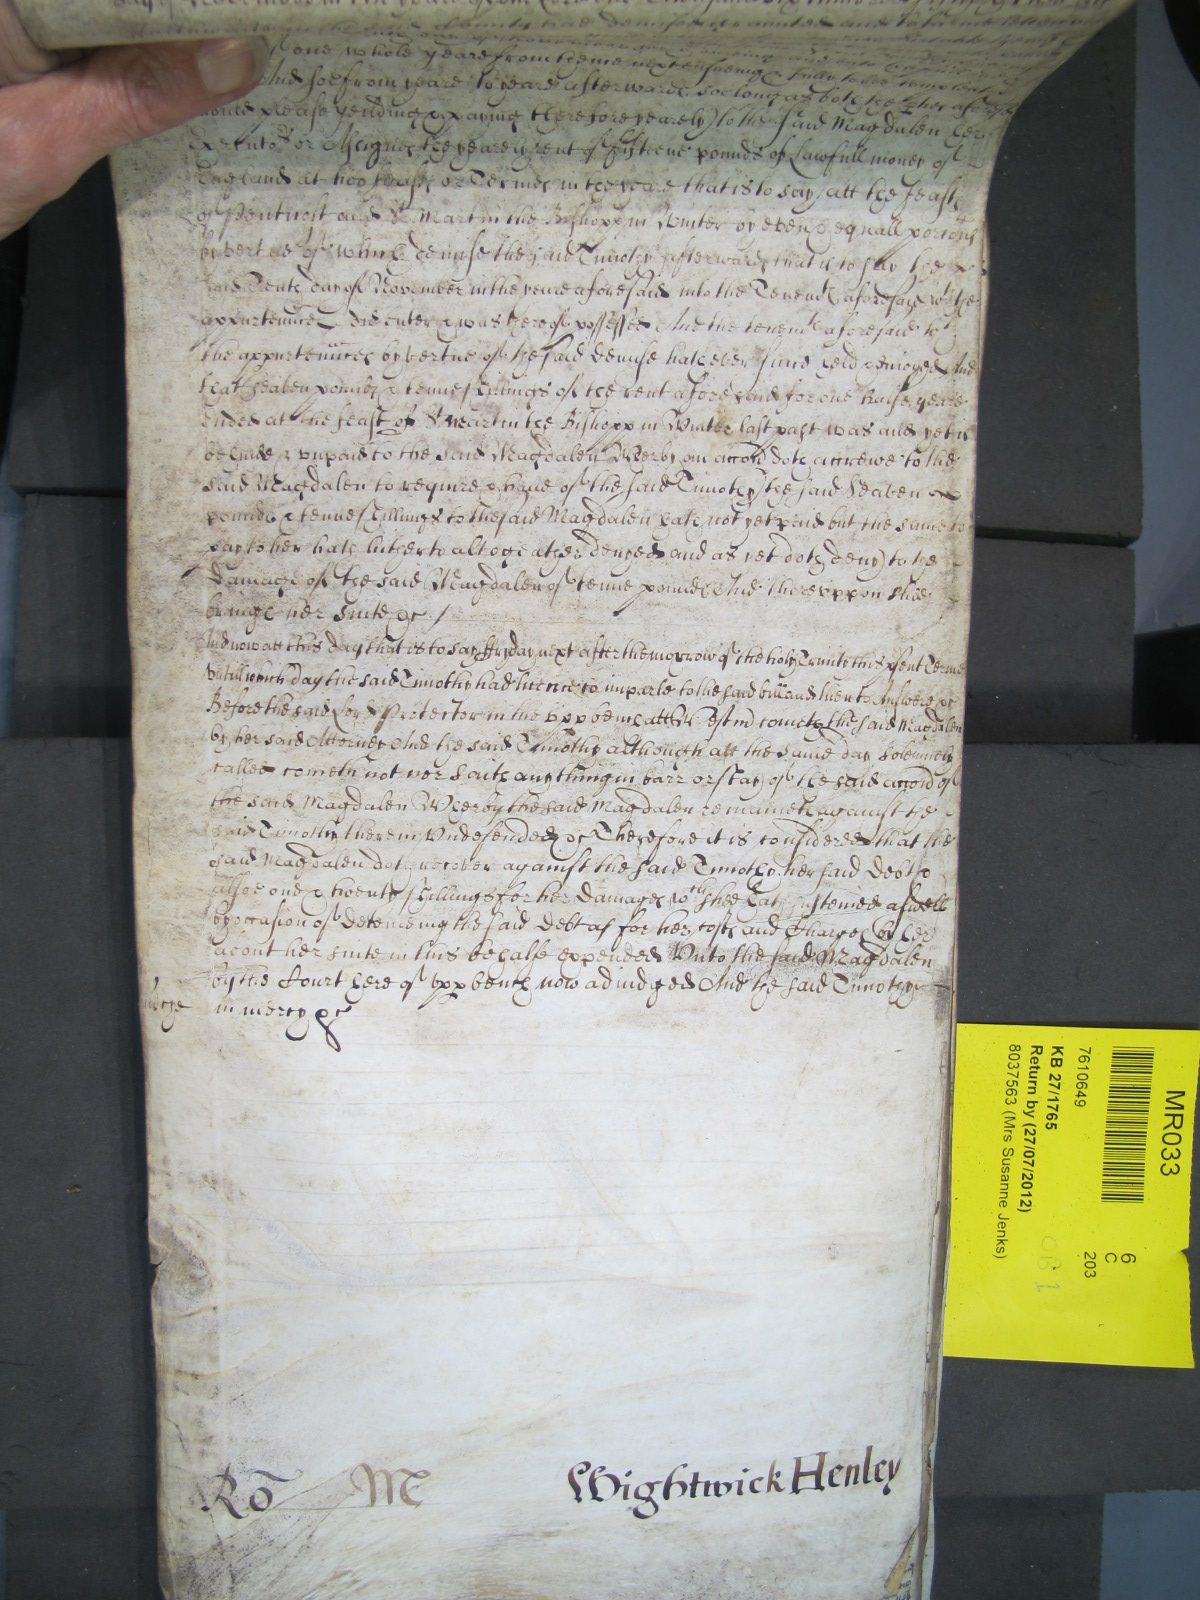 one whole yeare from thence next ensueing & fully to bee compleat
And soe from yeare to yeare afterwards soe long as both the
would please yeilding & paying therefore yearely to the said Magdalen her
Executors or Assignes the yearely rent of fifteene pounds of Lawfull money of
England at two feasts or Termes in the yeare that is to say att the feasts
of Pentecost and St Martin the Bishopp in Winter by even & equall porcons
by vertue of which demise the said Timothy afterwards that is to say the
said Tenth day of November in the yeare aforesaid into the Tenemts aforesaid wth the
appurtennces did enter & was thereof possessed And the tenemts aforesaid wth
the appurtennces by vertue of the said demise hath ever since held & enioyed And
that seaven pounds & tenne shillings of the rent aforesaid for one halfe yeare
ended at the feast of St Martin the Bishopp in Winter last past was and yet is
behinde & unpaid to the said Magdalen Wherby an accon doth accrewe to the
said Magdalen to require & have of the said Timothy the said seaven
pounds & tenne shillings to the said Magdalen hath not yet paid but the same to
pay to her hath hitherto altogeather denyed and as yet doth deny to the
damage of the said Magdalen of tenne pounds And thereuppon shee
bringe her suite &c /
And now att this day that is to say ffryday next after the morrow of the holy Trinity this psent Terme
Untill which day the said Timothy had licence to imparle to the said bill and then to Answere &c
Before the said Lord Protector in the upp bench att Westmr cometh the said Magdalen
by her said Attorney And the said Timothy although att the same day solemnely
called cometh not nor saith any thing in barr or stay of the said accon of
the said Magdalen Wherby the said Magdalen remaineth against the
said Timothy therein Undefended &c Therefore it is considered that the
said Magdalen doth recover against the said Timothy her said Debt &
alsoe one & twenty shillings for her damages wch shee hath susteined aswell
by occasion of deteineing the said debt as for her costs and Charges by her
about her suite in this behalfe expended Unto the said Magdalen
by the Court here of upp bench now adiudged And the said Timothy
in mercy &c
Ro M Wightwick Henley
MR033
6
C
203
7610649
KB 27/1765
Return by (27/07/2012)
8037563 (Mrs Susanne Jenks)